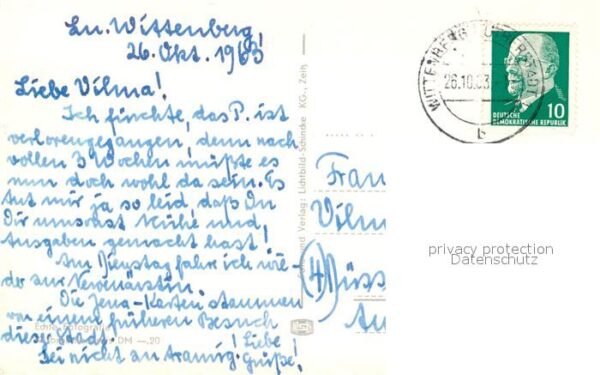 Lu. Wittenberg!
26. Okt. 1963
Liebe Vilma!
Ich fürchte, das P. ist
verlorengegangen, denn nach
vollen 3 Wochen müßte es
nun doch wohl da sein. Es
tut mir ja so leid, daß Du
Dir umsonst Mühe und
Ausgaben gemacht hast!
Am Dienstag fahr ich wie-
der zur Nervenärztin.
Die Jena-Karten stammen
von einem früheren Besuch
dieser Stadt!
Sei nicht zu traurig! Liebe
Grüße!
Echte Fotografie
DM —.20
Verlag: Lichtbild-Schincke KG., Zeitz
Frau
Vilma
(4) Düss
WITTENBERG LUTHERSTADT
26.10.63
b
10
DEUTSCHE
DEMOKRATISCHE REPUBLIK
privacy protection
Datenschutz